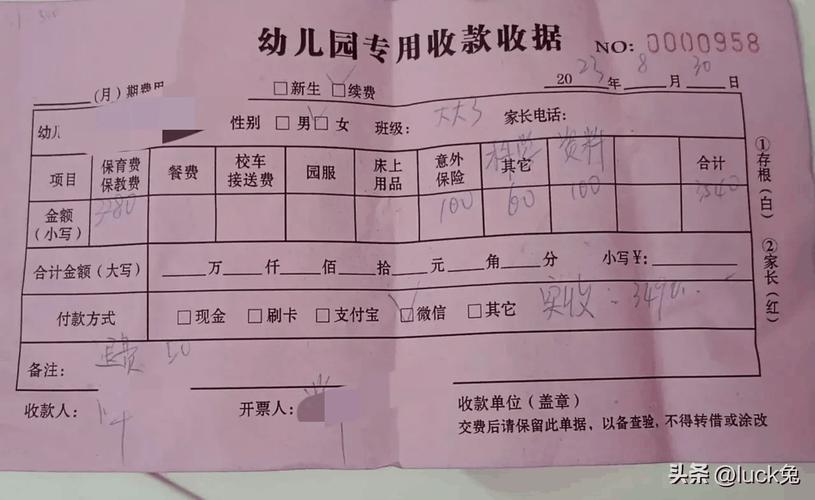 幼儿园专用收款收据 NO: 0000958
2023年8月30日
(月)期费用 □新生 □续费
幼儿 性别 □男 □女 班级: 大大3 家长电话:
项目 保育费保教费 餐费 校车接送费 园服 床上用品 意外保险 其它 资料 合计
金额(小写) 3280 100 60 100 3540
合计金额(大写) 万 仟 佰 拾 元 角 分 小写¥:
付款方式 □现金 □刷卡 □支付宝 □微信 □其它 实收: 3490
备注: 退费 50
收款人: 开票人: 收款单位(盖章)
交费后请保留此单据,以备查验,不得转借或涂改
①存根(白) ②家长(红)
头条 @luck兔